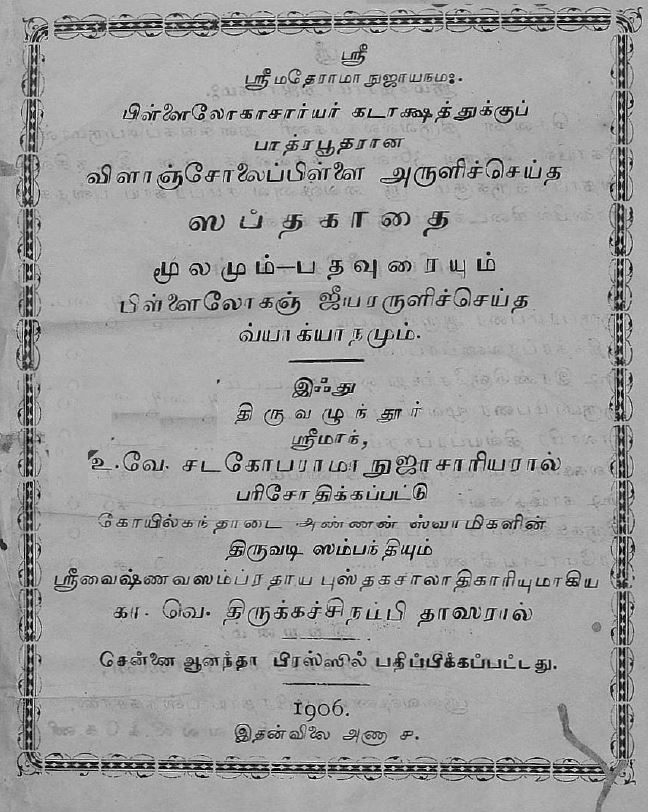 ஸ்ரீ
ஸ்ரீமதேராமாநுஜாயநம:.
பிள்ளைலோகாசார்யர் கடாக்ஷத்துக்குப்
பாத்ரபூதரான
விளாஞ்சோலைப்பிள்ளை அருளிச்செய்த
ஸப்தகாதை
மூலமும்—பதவுரையும்
பிள்ளைலோகஞ் ஜீயரருளிச்செய்த
வ்யாக்யாநமும்.
இஃது
திருவழுந்தூர்
ஸ்ரீமாந்,
உ.வே. சடகோபராமாநுஜாசாரியரால்
பரிசோதிக்கப்பட்டு
கோயில்கந்தாடை அண்ணன் ஸ்வாமிகளின்
திருவடி ஸம்பந்தியும்
ஸ்ரீவைஷ்ணவஸம்ப்ரதாய புஸ்தகசாலாதிகாரியுமாகிய
கா. வெ. திருக்கச்சிநம்பி தாஸரால்
சென்னை ஆனந்தா பிரஸ்ஸில் பதிப்பிக்கப்பட்டது.
1906.
இதன்விலை அணா ச.